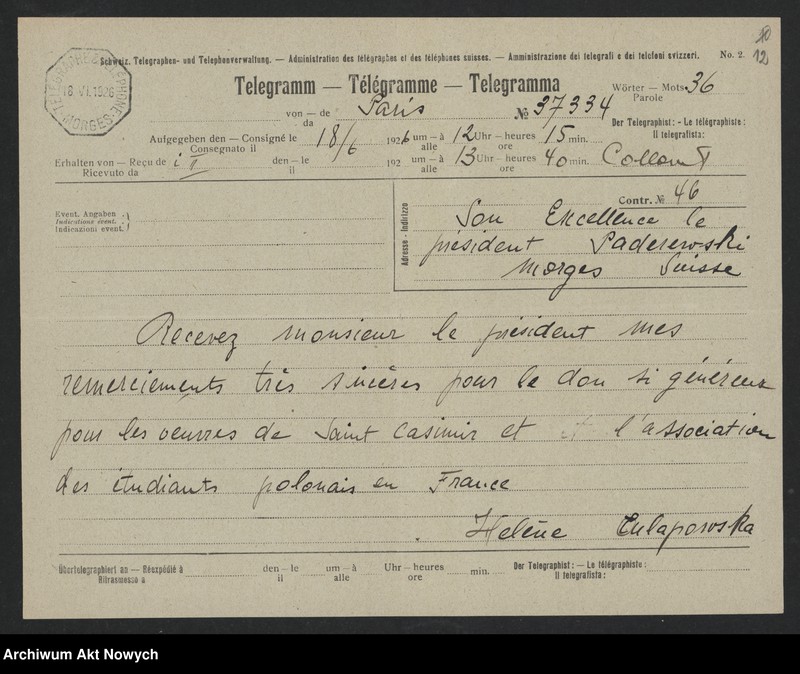 30
12
Schweiz. Telegraphen- und Telephonverwaltung. — Administration des télégraphes et des téléphones suisses. — Amministrazione dei telegrafi e dei telefoni svizzeri. No. 2.
TÉLÉGRAPHE & TÉLÉPHONE
18.VI.1926
MORGES
Telegramm — Télégramme — Telegramma
Wörter — Mots 36
Parole
von — de Paris
da
№ 37334
Der Telegraphist: — Le télégraphiste:
Il telegrafista:
Aufgegeben den — Consigné le 18/6 1926 um — à 12 Uhr — heures 15 min.
Consegnato il alle ore
Erhalten von — Reçu de den — le 192 um — à 13 Uhr — heures 40 min.
Ricevuto da il alle ore
Contr. № 46
Event. Angaben
Indications évent.
Indicazioni event.
Adresse - Indirizzo
Son Excellence le
président Paderewski
Morges Suisse
Recevez monsieur le président mes
remerciements très sincères pour le don si généreux
pour les oeuvres de Saint Casimir et l'association
des étudiants polonais en France
Helène
Übertelegraphiert an — Réexpédié à den — le um — à Uhr — heures min. Der Telegraphist: — Le télégraphiste:
Ritrasmesso a il alle ore Il telegrafista:
Archiwum Akt Nowych